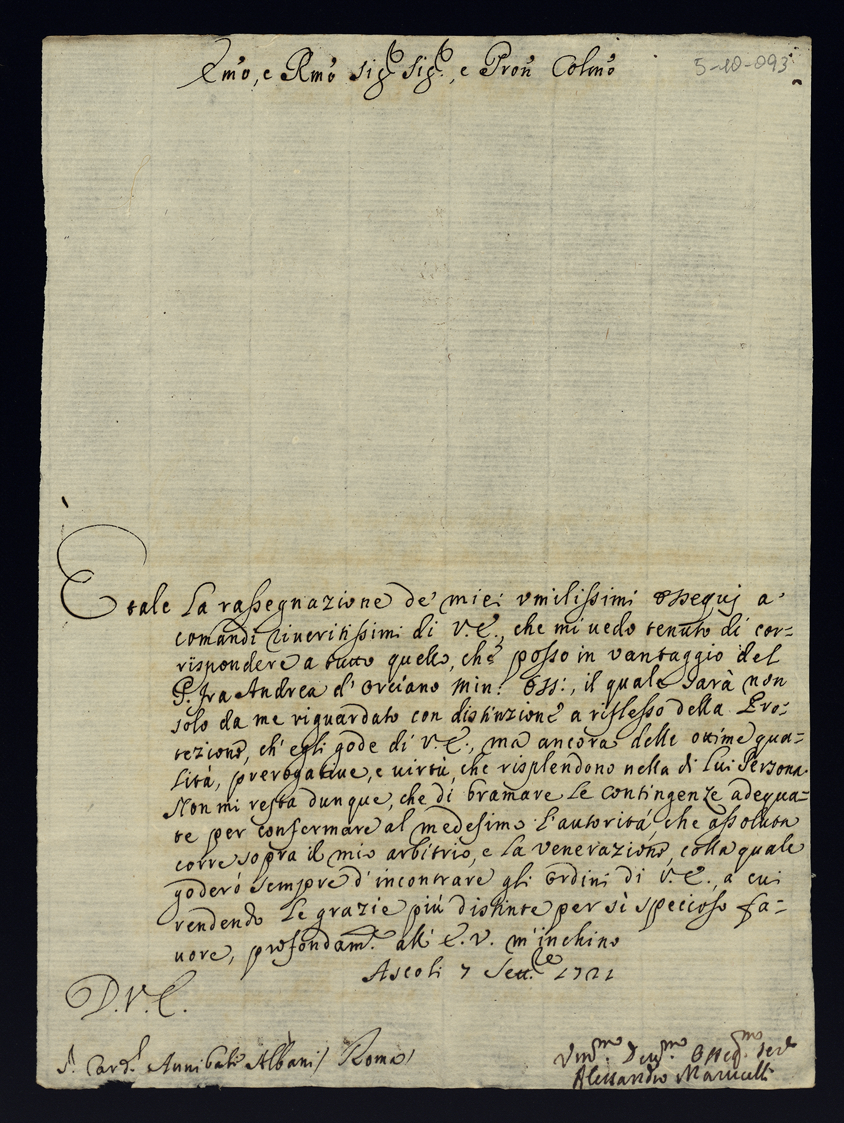 Emo, e Rmo Sigr Sigr, e Pron Colmo
5-10-093
E tale la rassegnazione de' miei vmilissimi ossequj a'
comandi riueritissimi di V.E., che mi uedo tenuto di cor=
rispondere a tutto quello, che posso in vantaggio del
P. fra Andrea d'Orciano Min: Oss:, il quale sarà non
solo da me riguardato con distinzione a riflesso della Pro=
tezione, ch'egli gode di V.E., ma ancora delle ottime qua=
lità, prerogatiue, e uirtù, che risplendono nella di lui Persona.
Non mi resta dunque, che di bramare le contingenze adequa=
te per confermare al medesimo l'autorità, che assoluta
corre sopra il mio arbitrio, e la venerazione, colla quale
goderò sempre d'incontrare gli ordini di V.E. a cui
rendendo le grazie più distinte per sì specioso fa=
uore, profondamte. all'E.V. m'inchino
Ascoli 7 Settre 1721
D.V.E.
Sr. Cardl Annibale Albani / Roma /
Vmmo Deumo Osseqmo Serre
Alessandro Marucelli